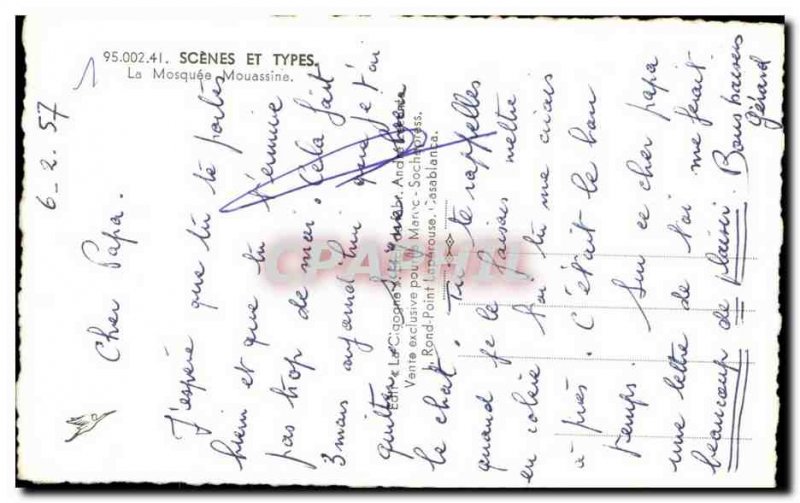 95.002.41. SCÈNES ET TYPES.
La Mosquée Mouassine.
6-2.57
Cher Papa.
J'espère que tu te portes
bien et que tu t'ennuie
pas trop de moi. Cela fait
3 mois aujourd'hui que je t'ai
quitter.
le chat. Tu te rappelles
quand je le faisais mettre
en colère toi tu me criais
à près. C'était le bon
temps. Sur ce cher papa
une lettre de toi me ferait
beaucoup de plaisir. Bons baisers
Gérard
Vente exclusive pour le Maroc - Sochepress,
Rond-Point Lapérouse, Casablanca.
CPAPHIL